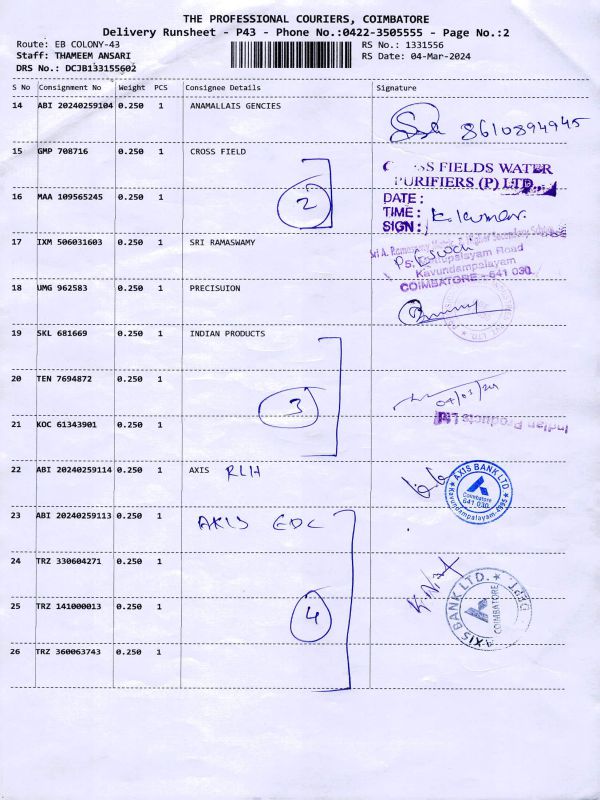 THE PROFESSIONAL COURIERS, COIMBATORE
Delivery Runsheet - P43 - Phone No.:0422-3505555 - Page No.:2
Route: EB COLONY-43 RS No.: 1331556
Staff: THAMEEM ANSARI RS Date: 04-Mar-2024
DRS No.: DCJB133155602
S No Consignment No Weight PCS Consignee Details Signature
14 ABI 20240259104 0.250 1 ANAMALLAIS GENCIES
8610894945
15 GMP 708716 0.250 1 CROSS FIELD
SS FIELDS WATER
PURIFIERS (P) LTD.,
16 MAA 109565245 0.250 1
2
DATE :
TIME :
SIGN :
K. Kumar
17 IXM 506031603 0.250 1 SRI RAMASWAMY
Sri A. Ramasamy
Kavundampalayam
COIMBATORE - 641 030
18 UMG 962583 0.250 1 PRECISUION
19 SKL 681669 0.250 1 INDIAN PRODUCTS
20 TEN 7694872 0.250 1
3
04/03/24
21 KOC 61343901 0.250 1
Indian Products Ltd
22 ABI 20240259114 0.250 1 AXIS RLH
AXIS BANK LTD
Coimbatore
641 030
Kavundampalayam
23 ABI 20240259113 0.250 1 AXIS EDC
24 TRZ 330604271 0.250 1
25 TRZ 141000013 0.250 1
4
AXIS BANK LTD.
COIMBATORE
26 TRZ 360063743 0.250 1